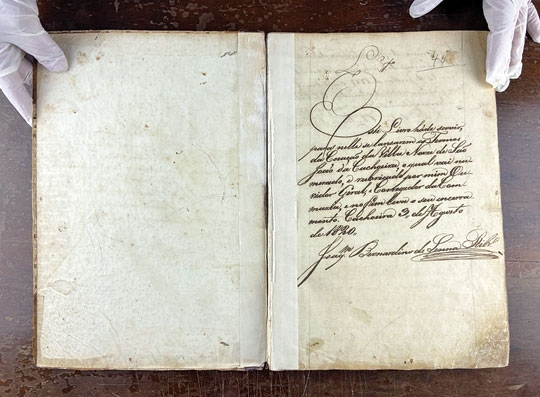 Este Livro háde servir,
para nelle se lansarem os Termos
da Creação da Villa Nova de São
João da Cachoeira, o qual vai nu
merado, e rubricado por mim Ou
vidor Geral, e Corregedor da Com
marca, e no fim leva o seu encerra
mento. Cachoeira 3 de Agosto
de 1820.
Joaqm Bernardino de Senna Ribro